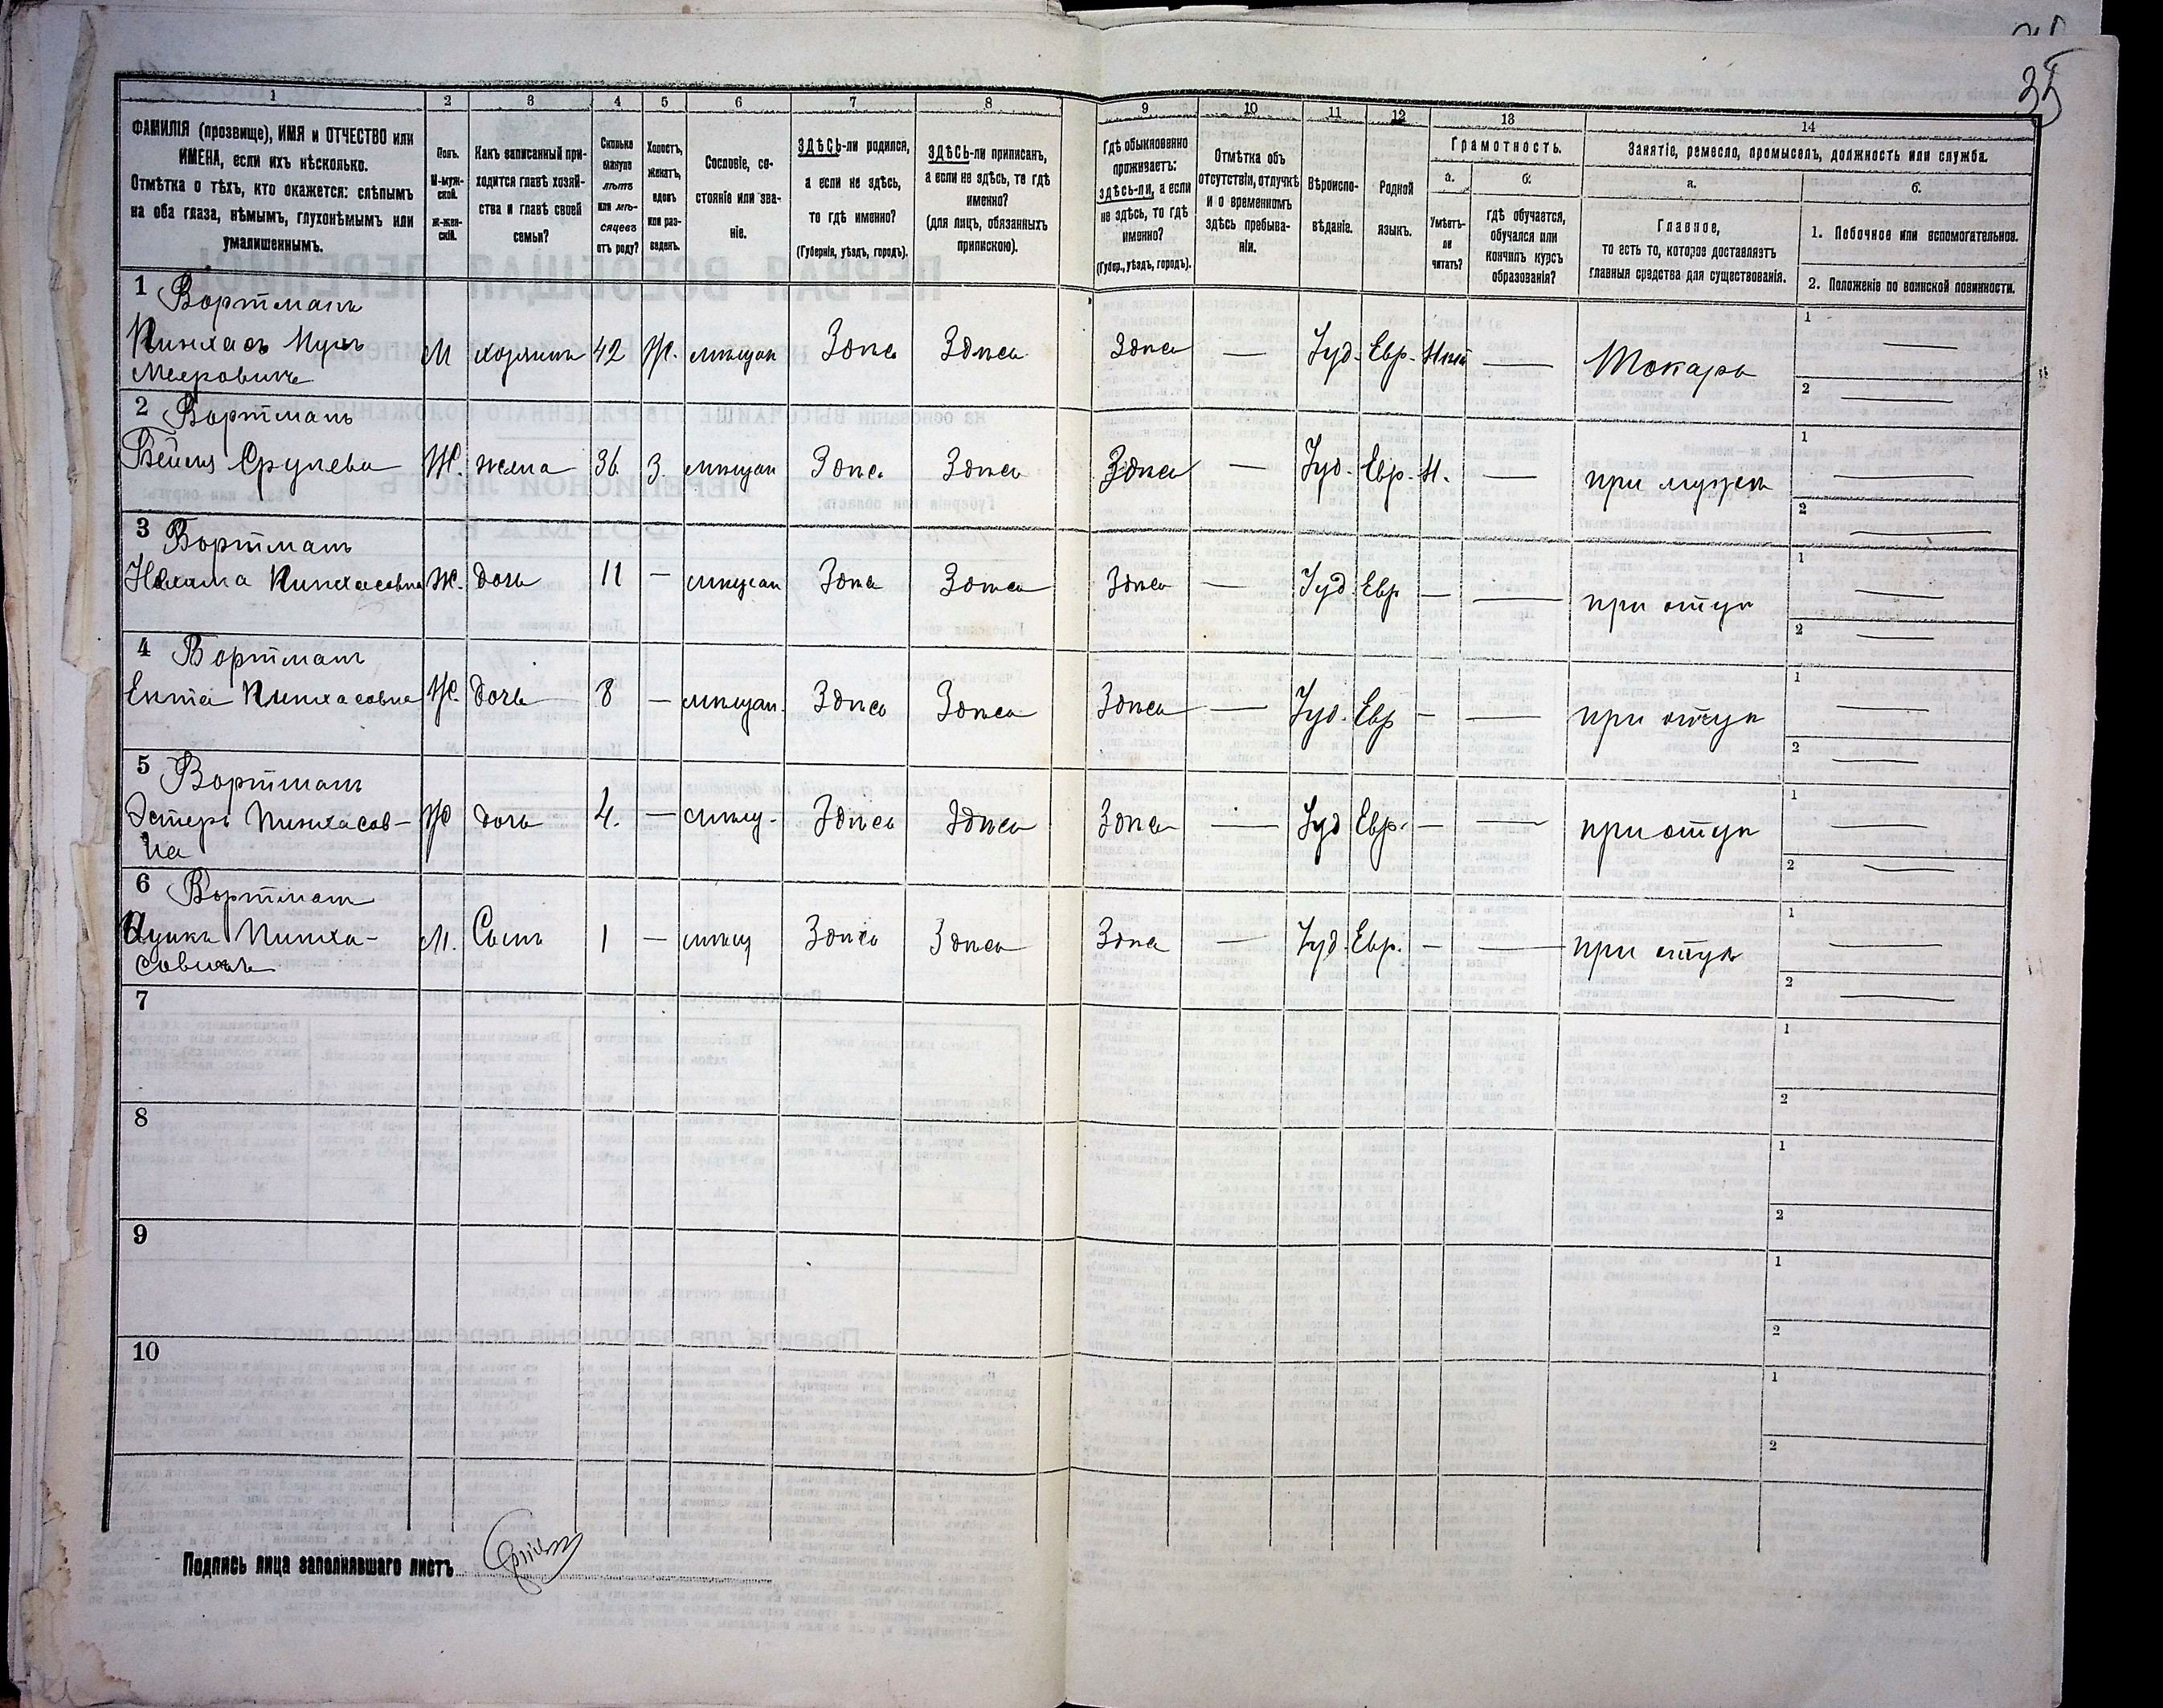 1 2 3 4 5 6 7 8 9 10 11 12 13 14
ФАМИЛІЯ (прозвище), ИМЯ и ОТЧЕСТВО или
ИМЕНА, если ихъ нѣсколько.
Отмѣтка о тѣхъ, кто окажется: слѣпымъ
на оба глаза, нѣмымъ, глухонѣмымъ или
умалишеннымъ.
Полъ.
М-муж-
ской.
ж-жен-
скій.
Какъ записанный при-
ходится главѣ хозяй-
ства и главѣ своей
семьи?
Сколько
минуло
лѣтъ
или мѣ-
сяцевъ
отъ роду?
Холостъ,
женатъ,
вдовъ
или раз-
веденъ.
Сословіе, со-
стояніе или зва-
ніе.
ЗДѢСЬ-ли родился,
а если не здѣсь,
то гдѣ именно?
(Губернія, уѣздъ, городъ).
ЗДѢСЬ-ли приписанъ,
а если не здѣсь, то гдѣ
именно?
(для лицъ, обязанныхъ
припискою).
Гдѣ обыкновенно
проживаетъ:
здѣсь-ли, а если
не здѣсь, то гдѣ
именно?
(Губер., уѣздъ, городъ).
Отмѣтка объ
отсутствіи, отлучкѣ
и о временномъ
здѣсь пребыва-
ніи.
Вѣроиспо-
вѣданіе.
Родной
языкъ.
Грамотность.
а.
Умѣетъ-
ли
читать?
б.
гдѣ обучается,
обучался или
кончилъ курсъ
образованія?
Занятіе, ремесло, промыселъ, должность или служба.
а.
Главное,
то есть то, которое доставляетъ
главныя средства для существованія.
б.
1. Побочное или вспомогательное.
2. Положеніе по воинской повинности.
1 Вортманъ
Пинхасъ
Мееровичъ
М хозяинъ 42 Ж. мѣщан Здѣсь Здѣсь Здѣсь — Іуд. Евр. Нѣтъ — Токарь 1 — 2 —
2 Вортманъ
Бейля Срулева Ж. жена 36 З. мѣщан Здѣсь Здѣсь Здѣсь — Іуд. Евр. Н. — при мужѣ 1 — 2 —
3 Вортманъ
Нахама Пинхасовна Ж. дочь 11 — мѣщан Здѣсь Здѣсь Здѣсь — Іуд. Евр — — при отцѣ 1 — 2 —
4 Вортманъ
Ента Пинхасовна Ж. дочь 8 — мѣщан. Здѣсь Здѣсь Здѣсь — Іуд. Евр — — при отцѣ 1 — 2 —
5 Вортманъ
Эстеръ Пинхасов-
на
Ж дочь 4. — мѣщ. Здѣсь Здѣсь Здѣсь — Іуд Евр. — — при отцѣ 1 — 2 —
6 Вортманъ
Пинха-
совичъ
М. Сынъ 1 — мѣщ Здѣсь Здѣсь Здѣсь — Іуд. Евр. — — при отцѣ 1 — 2 —
7 1 2
8 1 2
9 1 2
10 1 2
Подпись лица заполнявшаго листъ